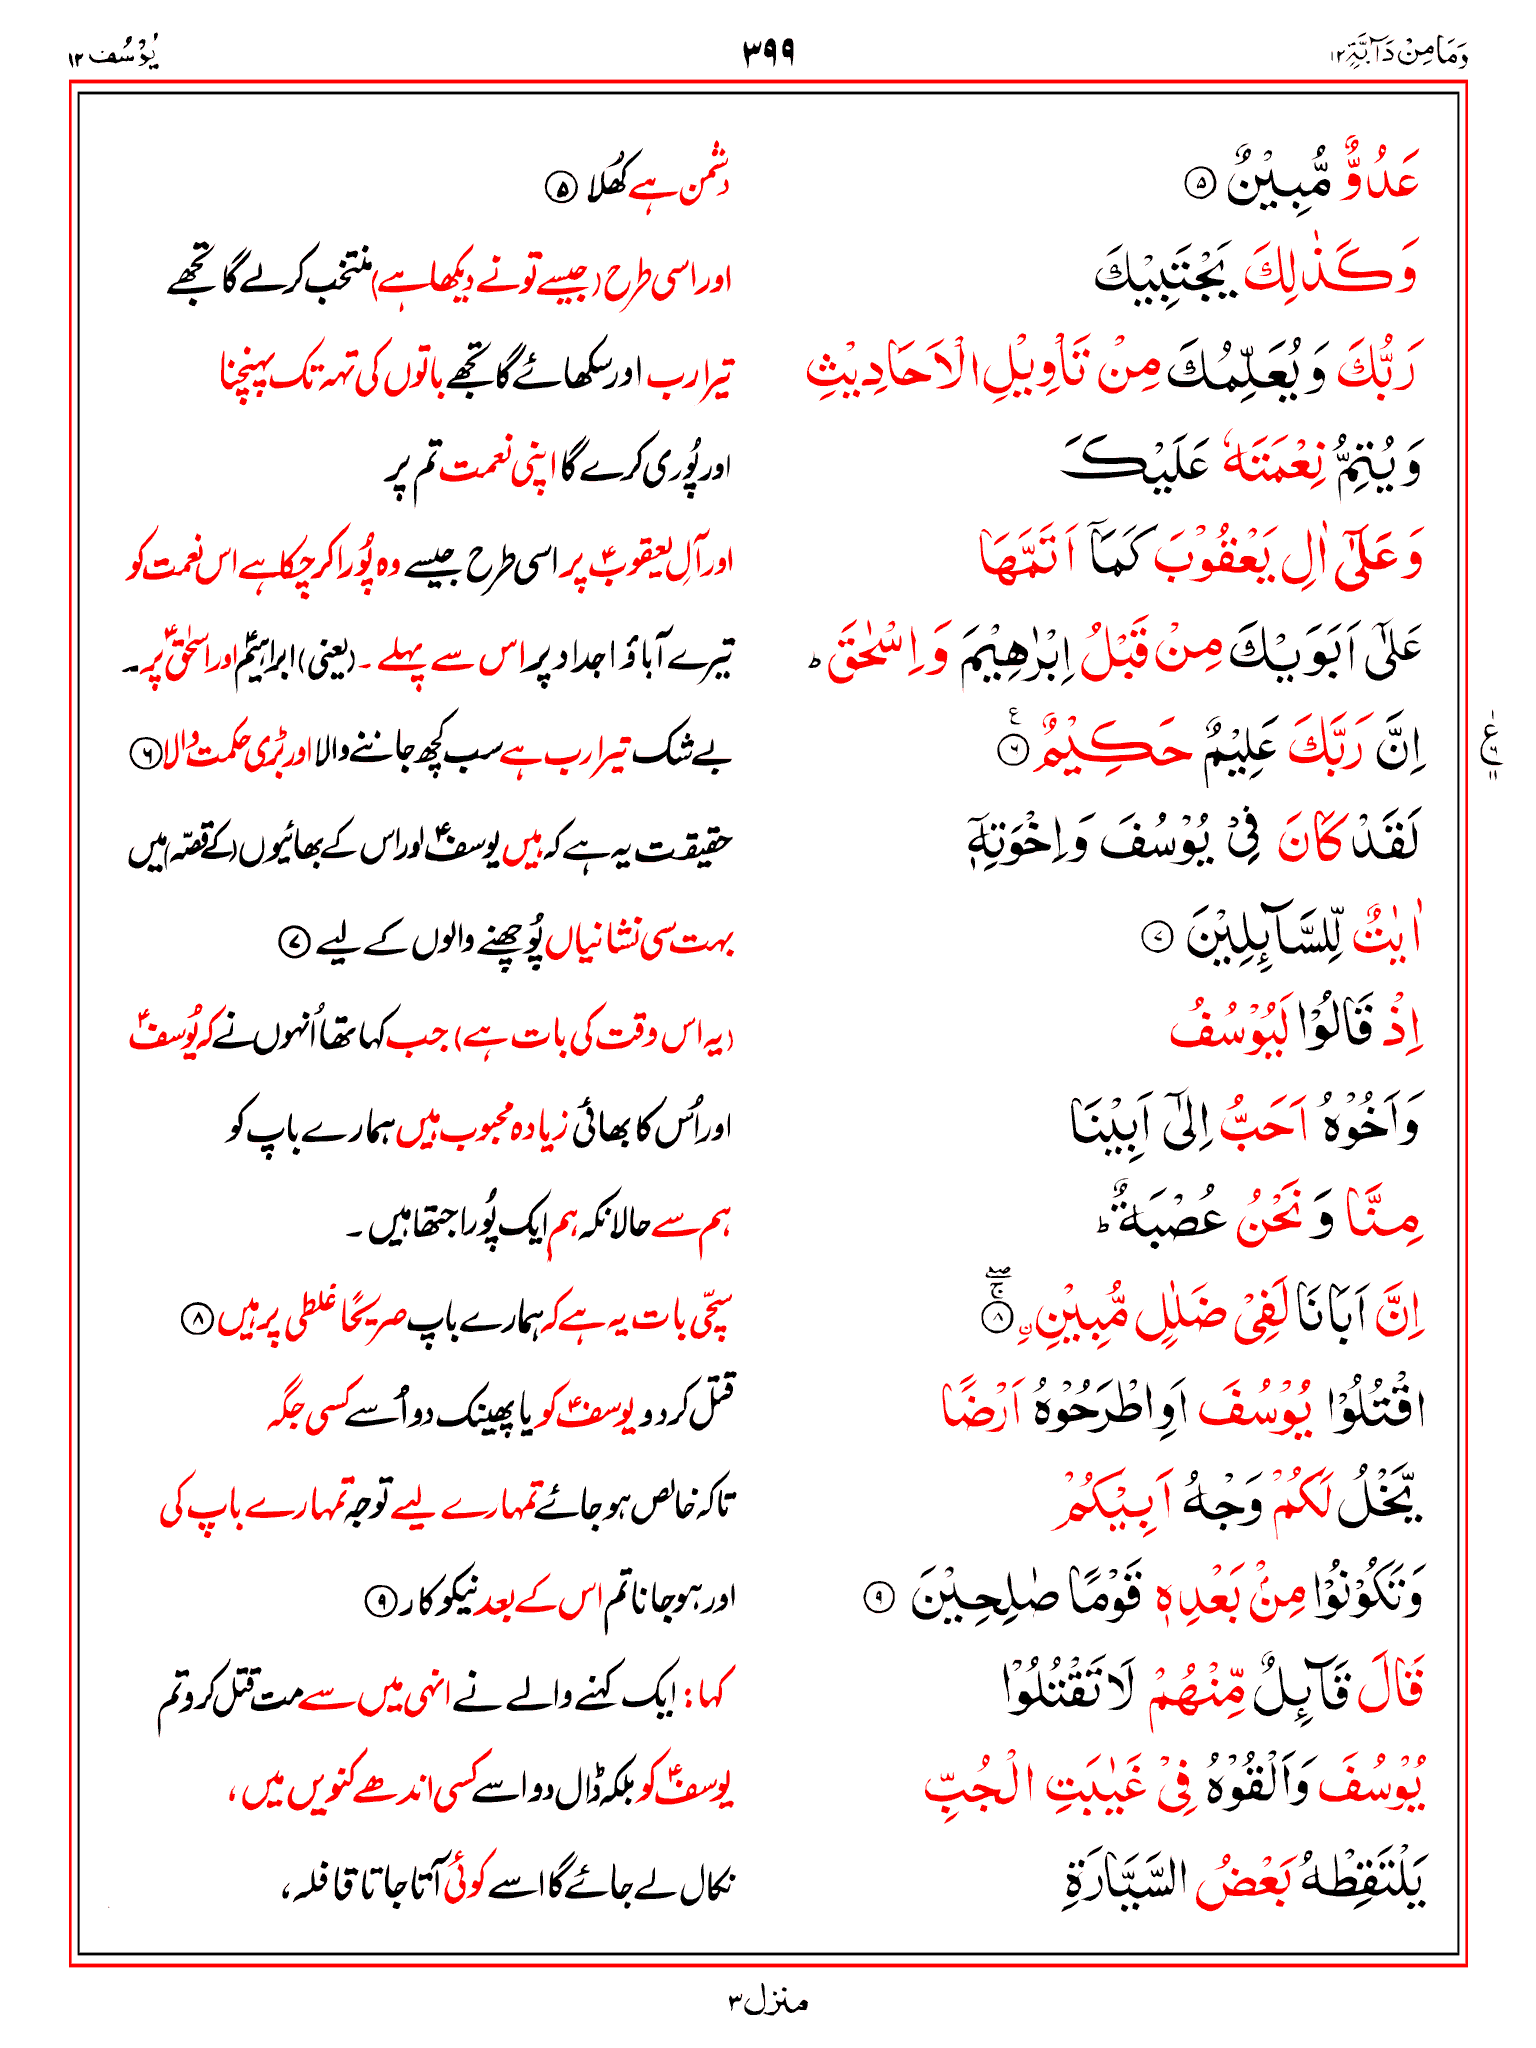 وَمَا مِنْ دَآبَّةٍ ۱۲
۳۹۹
یُوْسُف ۱۲
عَدُوٌّ مُّبِیْنٌ ۵
دشمن ہے کھُلا ۵
وَكَذٰلِكَ یَجْتَبِیْكَ
اور اسی طرح (جیسے تونے دیکھا ہے) منتخب کرلے گا تجھے
رَبُّكَ وَیُعَلِّمُكَ مِنْ تَاْوِیْلِ الْاَحَادِیْثِ
تیرا رب اور سکھائے گا تجھے باتوں کی تہہ تک پہنچنا
وَیُتِمُّ نِعْمَتَهٗ عَلَیْكَ
اور پُوری کرے گا اپنی نعمت تم پر
وَعَلٰٓی اٰلِ یَعْقُوْبَ كَمَاۤ اَتَمَّهَا
اور آلِ یعقوبؑ پر اسی طرح جیسے وہ پُورا کر چکا ہے اس نعمت کو
عَلٰۤی اَبَوَیْكَ مِنْ قَبْلُ اِبْرٰهِیْمَ وَاِسْحٰقَ ؕ
تیرے آباؤ اجداد پر اس سے پہلے ۔ (یعنی) ابراہیمؑ اور اسحٰقؑ پر۔
اِنَّ رَبَّكَ عَلِیْمٌ حَكِیْمٌ ۶ ع
بے شک تیرا رب ہے سب کچھ جاننے والا اور بڑی حکمت والا ۶
لَقَدْ كَانَ فِیْ یُوْسُفَ وَاِخْوَتِهٖۤ
حقیقت یہ ہے کہ ہیں یوسفؑ اور اس کے بھائیوں (کے قصّہ) میں
اٰیٰتٌ لِّلسَّآىِٕلِیْنَ ۷
بہت سی نشانیاں پُوچھنے والوں کے لیے ۷
اِذْ قَالُوْا لَیُوْسُفُ
(یہ اس وقت کی بات ہے) جب کہا تھا اُنہوں نے کہ یُوسفؑ
وَاَخُوْهُ اَحَبُّ اِلٰۤی اَبِیْنَا
اور اُس کا بھائی زیادہ محبوب ہیں ہمارے باپ کو
مِنَّا وَنَحْنُ عُصْبَةٌ ؕ
ہم سے حالانکہ ہم ایک پُورا جتھا ہیں ۔
اِنَّ اَبَانَا لَفِیْ ضَلٰلٍ مُّبِیْنِ ۟ۙ ۸
سچّی بات یہ ہے کہ ہمارے باپ صریحًا غلطی پر ہیں ۸
اقْتُلُوْا یُوْسُفَ اَوِ اطْرَحُوْهُ اَرْضًا
قتل کردو یوسفؑ کو یا پھینک دو اُسے کسی جگہ
یَّخْلُ لَكُمْ وَجْهُ اَبِیْكُمْ
تاکہ خالص ہوجائے تمہارے لیے توجہ تمہارے باپ کی
وَتَكُوْنُوْا مِنْۢ بَعْدِهٖ قَوْمًا صٰلِحِیْنَ ۹
اور ہو جانا تم اس کے بعد نیکو کار ۹
قَالَ قَآىِٕلٌ مِّنْهُمْ لَا تَقْتُلُوْا
کہا: ایک کہنے والے نے انہی میں سے مت قتل کرو تم
یُوْسُفَ وَاَلْقُوْهُ فِیْ غَیٰبَتِ الْجُبِّ
یوسفؑ کو بلکہ ڈال دو اسے کسی اندھے کنویں میں،
یَلْتَقِطْهُ بَعْضُ السَّیَّارَةِ
نکال لے جائے گا اسے کوئی آتا جاتا قافلہ،
منزل ۳